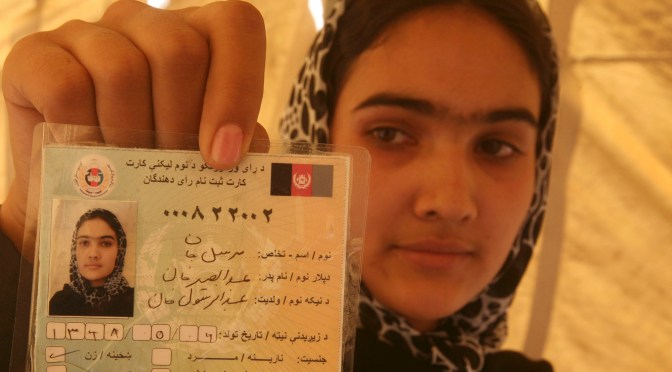 د رای د نوم لیکنی کارت
کارت ثبت نام رای دهندگان
۰۰۰۸۲۲۰۰۲
نوم / اسم - تخلص: مرسل جان
دپلار نوم / نام پدر: خان
د نیکه نوم / ولدیت: عبدالرسول خان
د زیږیدنې نیټه / تاریخ تولد:
جنسیت: نارینه / مرد ښځینه / زن